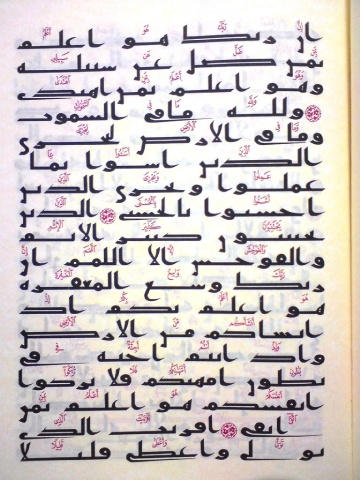 ان ربك هو اعلم
بمن ضل عن سبيله
وهو اعلم بمن اهتدى
ولله ما في السموت
وما في الارض ليجزي
الذين اسوا بما
عملوا ويجزي الذين
احسنوا بالحسنى الذين
يجتنبون كبير الاثم
والفوحش الا اللمم ان
ربك وسع المغفره
هو اعلم بكم اذ
انشاكم من الارض
واذ انتم اجنه في
بطون امهتكم فلا تزكوا
انفسكم هو اعلم بمن
اتقى افريت الذي
تولى واعطى قليلا